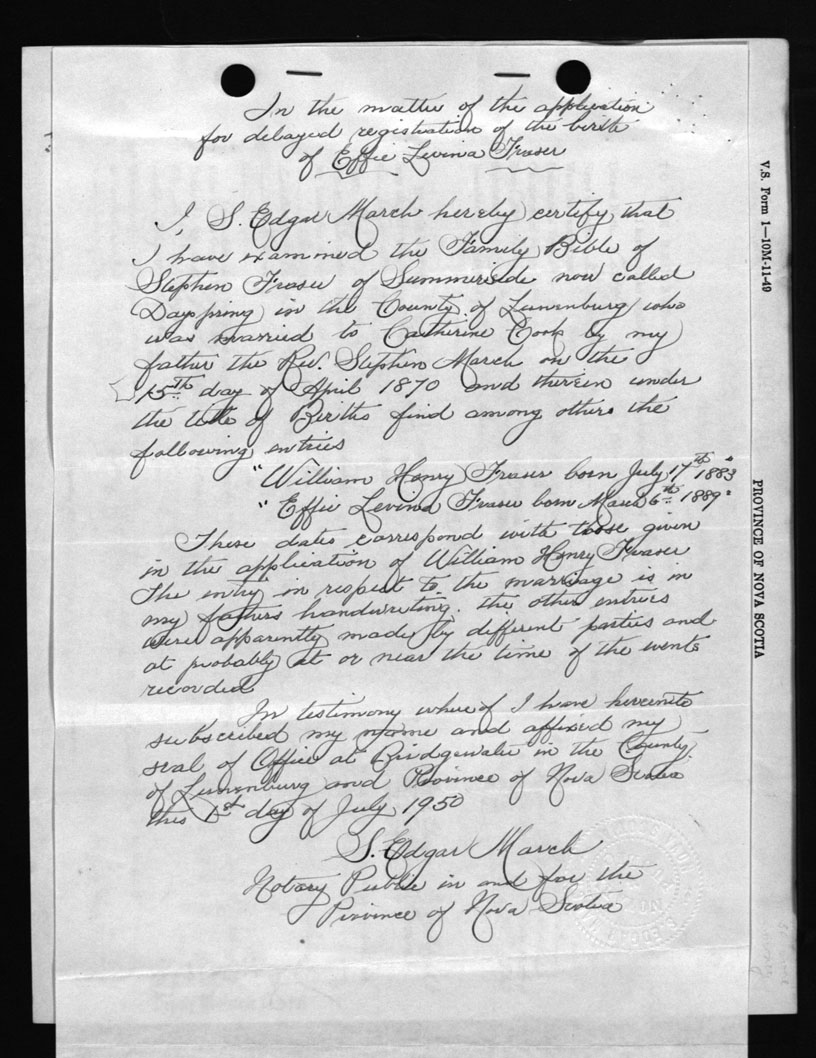 In the matter of the application
for delayed registration of the birth
of Effie Levina Fraser
I, S. Edgar March hereby certify that
I have examined the Family Bible of
Stephen Fraser of Summerside now called
Dayspring in the County of Lunenburg who
was married to Catherine Cook by my
father the Rev. Stephen March on the
15th day of April 1870 and therein under
the title of Births find among others the
following entries
"William Henry Fraser born July 17th 1883"
"Effie Levina Fraser born March 6th 1889"
These dates correspond with those given
in the application of William Henry Fraser
The entry in respect to the marriage is in
my fathers handwriting. the other entries
were apparently made by different parties and
at probably at or near the time of the events
recorded
In testimony whereof I have hereunto
subscribed my name and affixed my
seal of Office at Bridgewater in the County
of Lunenburg and Province of Nova Scotia
this 1st day of July 1950
S. Edgar March
Notary Public in and for the
Province of Nova Scotia
V.S. Form 1—10M-11-49
PROVINCE OF NOVA SCOTIA